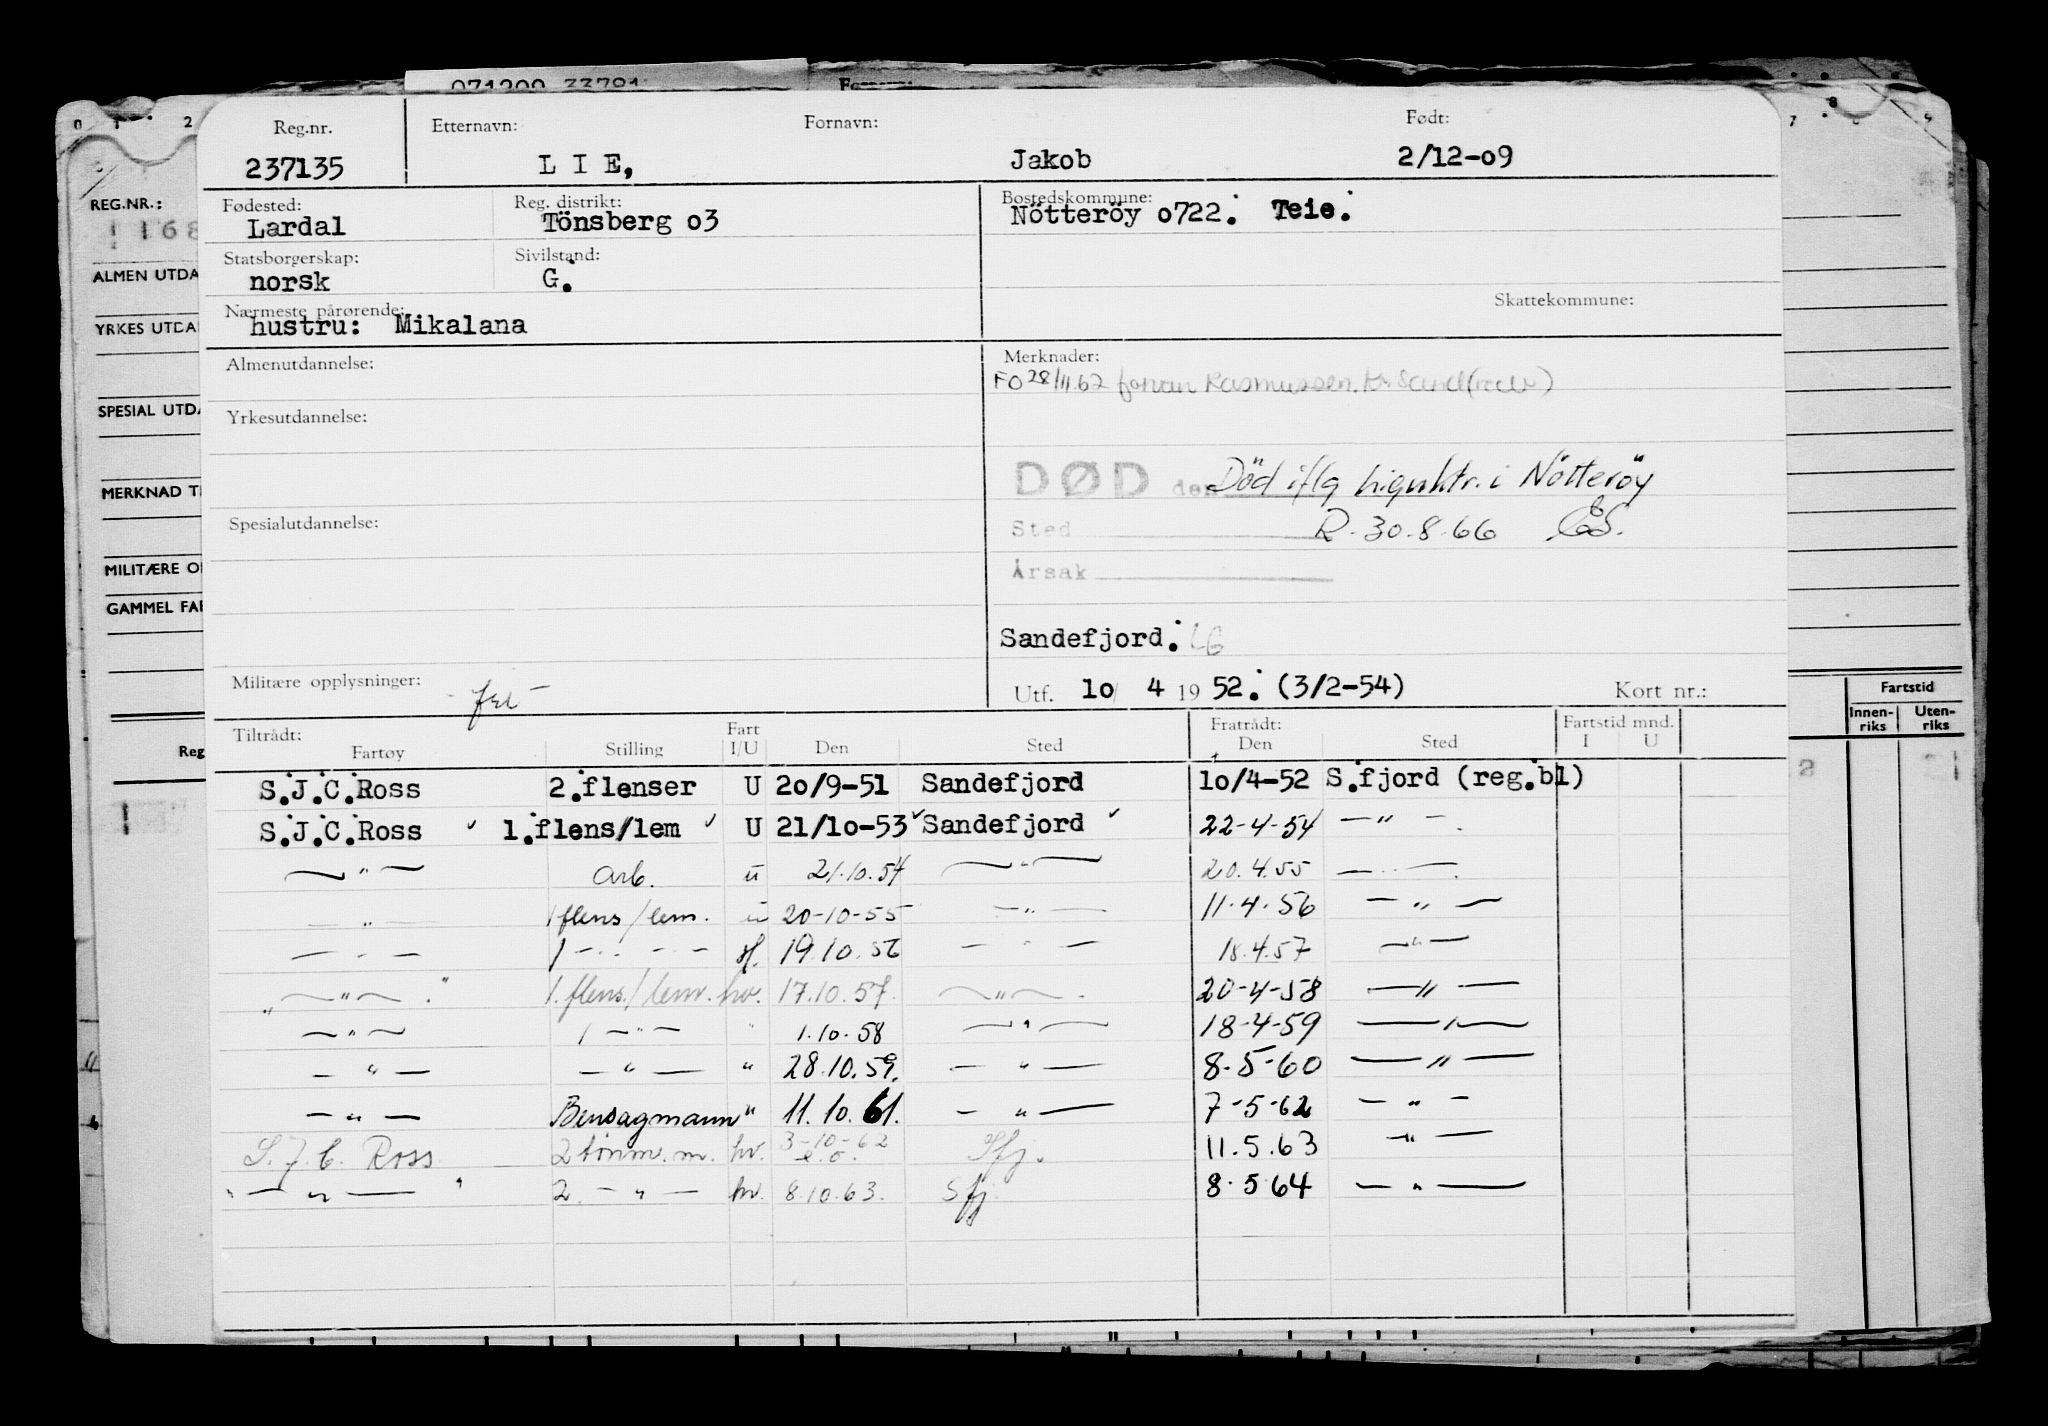 071209 33781
0 1 2 8 7 8 9
Reg.nr. Etternavn: Fornavn: Født:
237135 L I E, Jakob 2/12-o9
REG.NR.:
1168
Fødested: Reg. distrikt: Bostedskommune:
Lardal Tönsberg o3 Nötteröy o722. Teie.
Statsborgerskap: Sivilstand:
norsk G.
ALMEN UTDA
Skattekommune:
Nærmeste pårørende:
hustru: Mikalana
YRKES UTDA
Almenutdannelse: Merknader:
FO 28/11.62 Rasmussen
SPESIAL UTDA
Yrkesutdannelse:
DØD den Död iflg i Nötteröy
MERKNAD T
Spesialutdannelse: Sted R. 30.8.66 ES.
MILITÆRE O Årsak
GAMMEL FAR
Sandefjord. LG
Militære opplysninger: Utf. lo/ 4 19 52. (3/2-54) Kort nr.:
Fartstid
Innen-riks Uten-riks
Tiltrådt: Fart Fratrådt: Fartstid mnd.
Reg Fartøy Stilling I/U Den Sted Den Sted I U
S.J.C.Ross 2.flenser U 2o/9-51 Sandefjord lo/4-52 S.fjord (reg.bl)
S.J.C.Ross ✓ l.flens/lem ✓ U 21/lo-53 ✓ Sandefjord ✓ 22-4-54 — " —.
— " — arb. u 21.10.54 — " — 20.4.55 — " —.
— " — 1 flens/lem. u 20-10-55 — " — 11.4.56 — " —
— " — 1 — " — 19.10.56 — " — 18.4.57 — " —
" — " — " 1. flens./lem. hv. 17.10.57. — " —. 20-4-58 — " —
— " — 1 — " — " 1.10.58 — " — 18-4-59 — " —
— " — — " — " 28.10.59. — " — 8-5-60 — " —
— " — Bensagmann " 11.10.61. — " — 7-5-62 — " —
S.J.C. Ross 2 tønm.m. hv. 3-10-62 e.o. Sfj. 11.5.63 — " —
" — " — " 2. — " — hv. 8.10.63. Sfj. 8.5 64 — " —